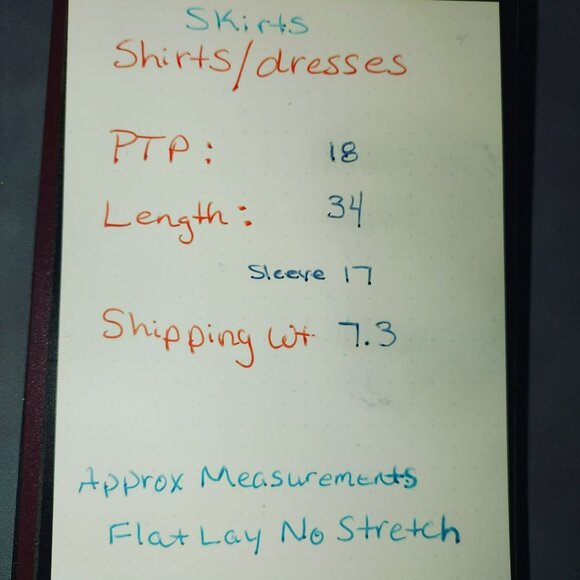 Skirts
Shirts/dresses
PTP: 18
Length: 34
Sleeve 17
Shipping Wt 7.3
Approx Measurements
Flat Lay No Stretch